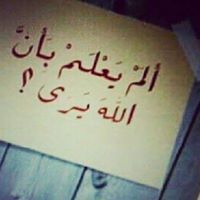 ألَمْ يَعْلَمْ بِأَنَّ
اللَّهَ يَرَى ؟